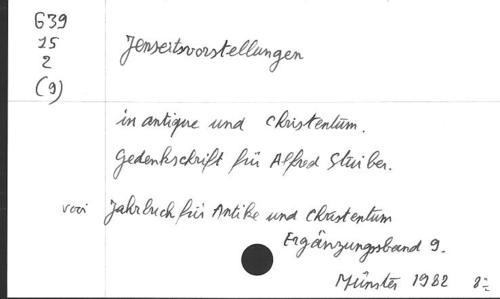 G39
15
2
(9)
Jenseitsvorstellungen
in antique und Christentum.
Gedenkschrift für Alfred Stuiber.
voci Jahrbuch für Antike und Christentum
Ergänzungsband 9.
Münster 1982 8=